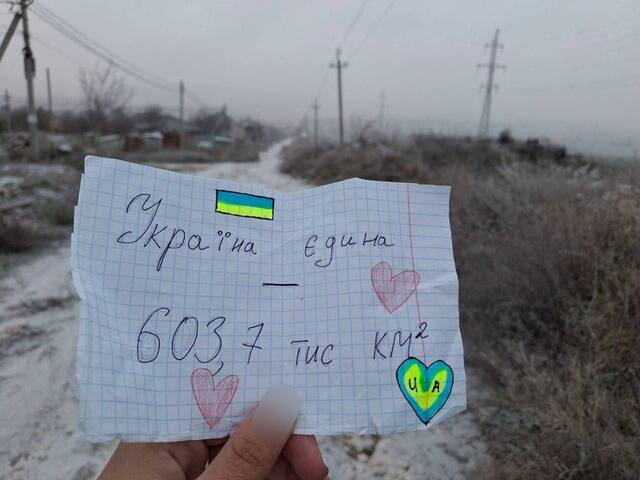 Україна єдина
—
603,7 тис км²
U A